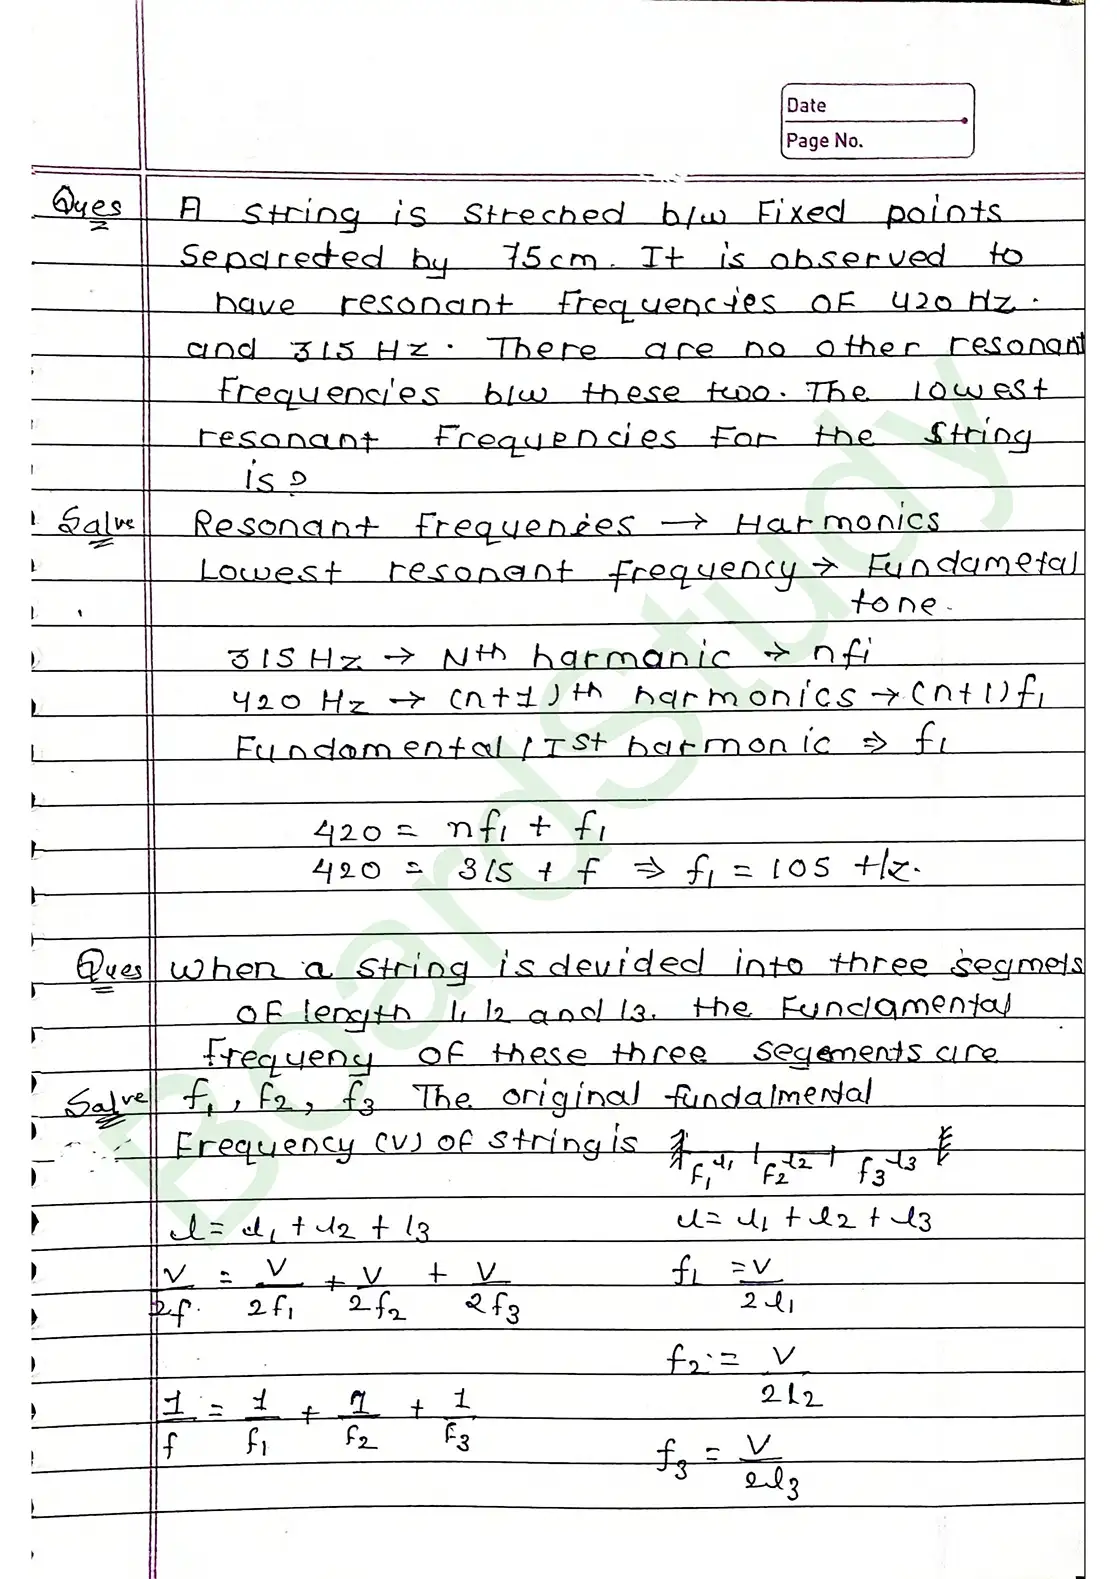 Date
Page No.
Ques A string is streched b/w Fixed points
Separeted by 75cm. It is observed to
have resonant frequencies OF 420 Hz.
and 315 Hz. There are no other resonant
frequencies b/w these two. The lowest
resonant Frequencies For the string
is?
Salve Resonant frequencies → Harmonics
Lowest resonant frequency → Fundametal
tone.
315 Hz → Nth harmanic → nfi
420 Hz → (n+1)th harmonics → (n+1)f₁
Fundamental / Ist harmonic ⇒ f₁
420 = nf₁ + f₁
420 = 315 + f ⇒ f₁ = 105 Hz.
Ques when a string is devided into three segmets
OF length l₁ l₂ and l₃. the Fundamental
frequeny OF these three segements are
Salve f₁, f₂, f₃ The original fundalmental
Frequency (v) of string is
f₁ l₁ f₂ l₂ f₃ l₃
l = l₁ + l₂ + l₃ l = l₁ + l₂ + l₃
v/2f. = v/2f₁ + v/2f₂ + v/2f₃ f₁ = v/2l₁
f₂ = v/2l₂
1/f = 1/f₁ + 1/f₂ + 1/f₃
f₃ = v/2l₃
BoardStudy